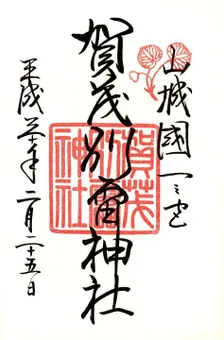 山城國一之宮
賀茂別雷神社
賀茂別雷神社
平成 年二月二十五日